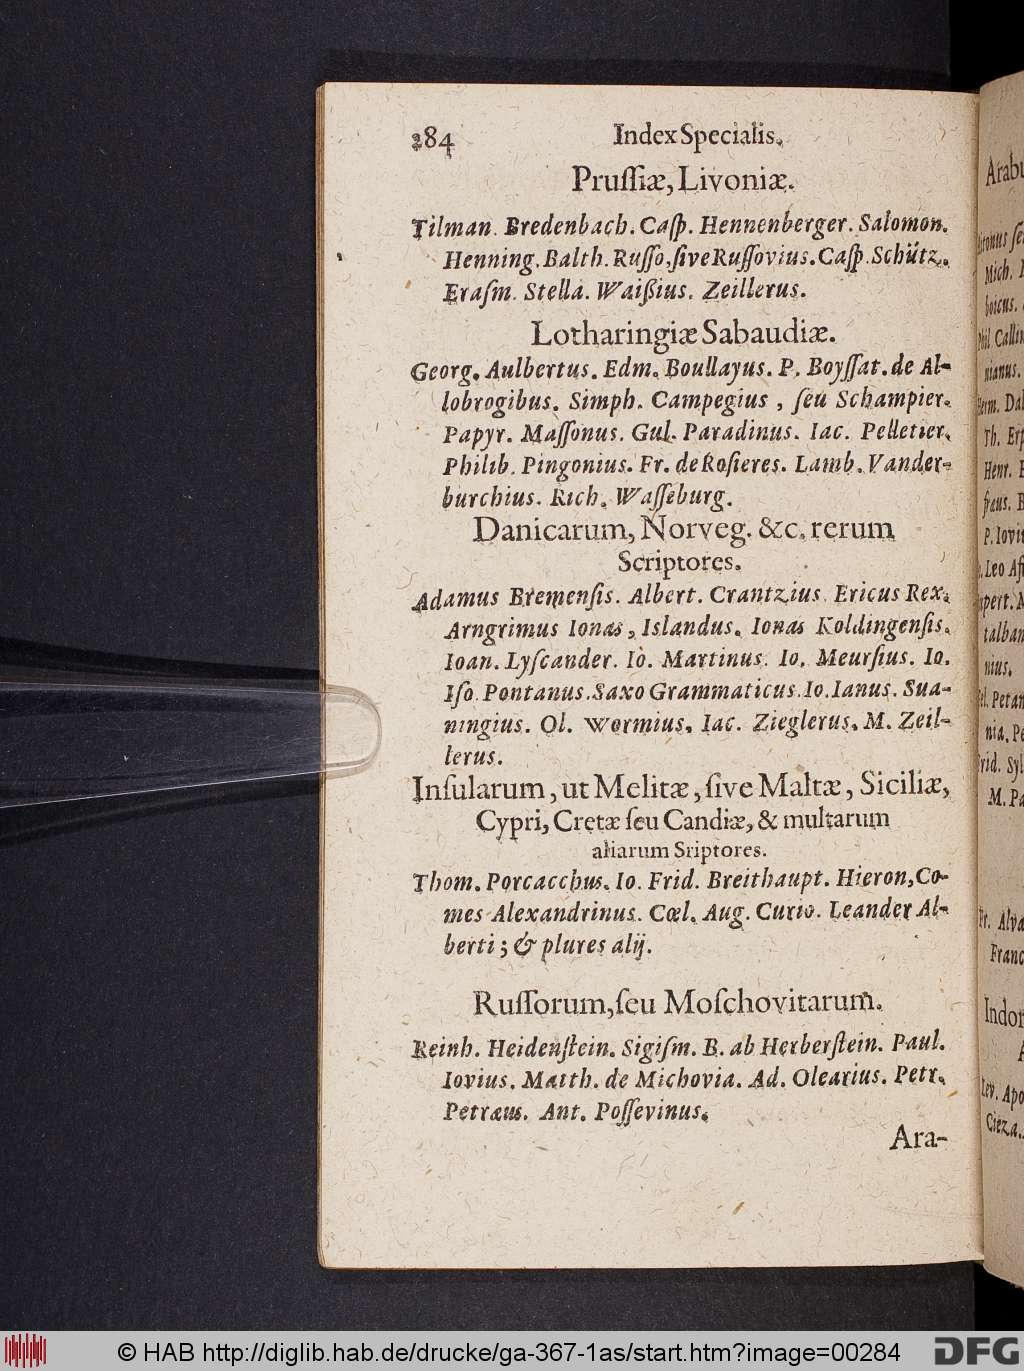 284 Index Specialis.
Prussiæ, Livoniæ.
Tilman. Bredenbach. Casp. Hennenberger. Salomon.
Henning. Balth. Russo, sive Russovius. Casp. Schütz.
Erasm. Stella. Waißius. Zeillerus.
Lotharingiæ Sabaudiæ.
Georg. Aulbertus. Edm. Boullayus. P. Boyssat. de Al-
lobrogibus. Simph. Campegius, seu Schampier.
Papyr. Massonus. Gul. Paradinus. Iac. Pelletier.
Philib. Pingonius. Fr. de Rosieres. Lamb. Vander-
burchius. Rich. Wasseburg.
Danicarum, Norveg. &c. rerum
Scriptores.
Adamus Bremensis. Albert. Crantzius. Ericus Rex.
Arngrimus Ionas, Islandus. Ionas Koldingensis.
Ioan. Lyscander. Io. Martinus. Io. Meursius. Io.
Iso. Pontanus. Saxo Grammaticus. Io. Ianus. Sua-
ningius. Ol. Wormius. Iac. Zieglerus. M. Zeil-
lerus.
Insularum, ut Melitæ, sive Maltæ, Siciliæ,
Cypri, Cretæ seu Candiæ, & multarum
aliarum Sriptores.
Thom. Porcacchus. Io. Frid. Breithaupt. Hieron, Co-
mes Alexandrinus. Cœl. Aug. Curio. Leander Al-
berti; & plures alij.
Russorum, seu Moschovitarum.
Reinh. Heidenstein. Sigism. B. ab Herberstein. Paul.
Iovius. Matth. de Michovia. Ad. Olearius. Petr.
Petræus. Ant. Possevinus.
Ara-
© HAB http://diglib.hab.de/drucke/ga-367-1as/start.htm?image=00284
DFG